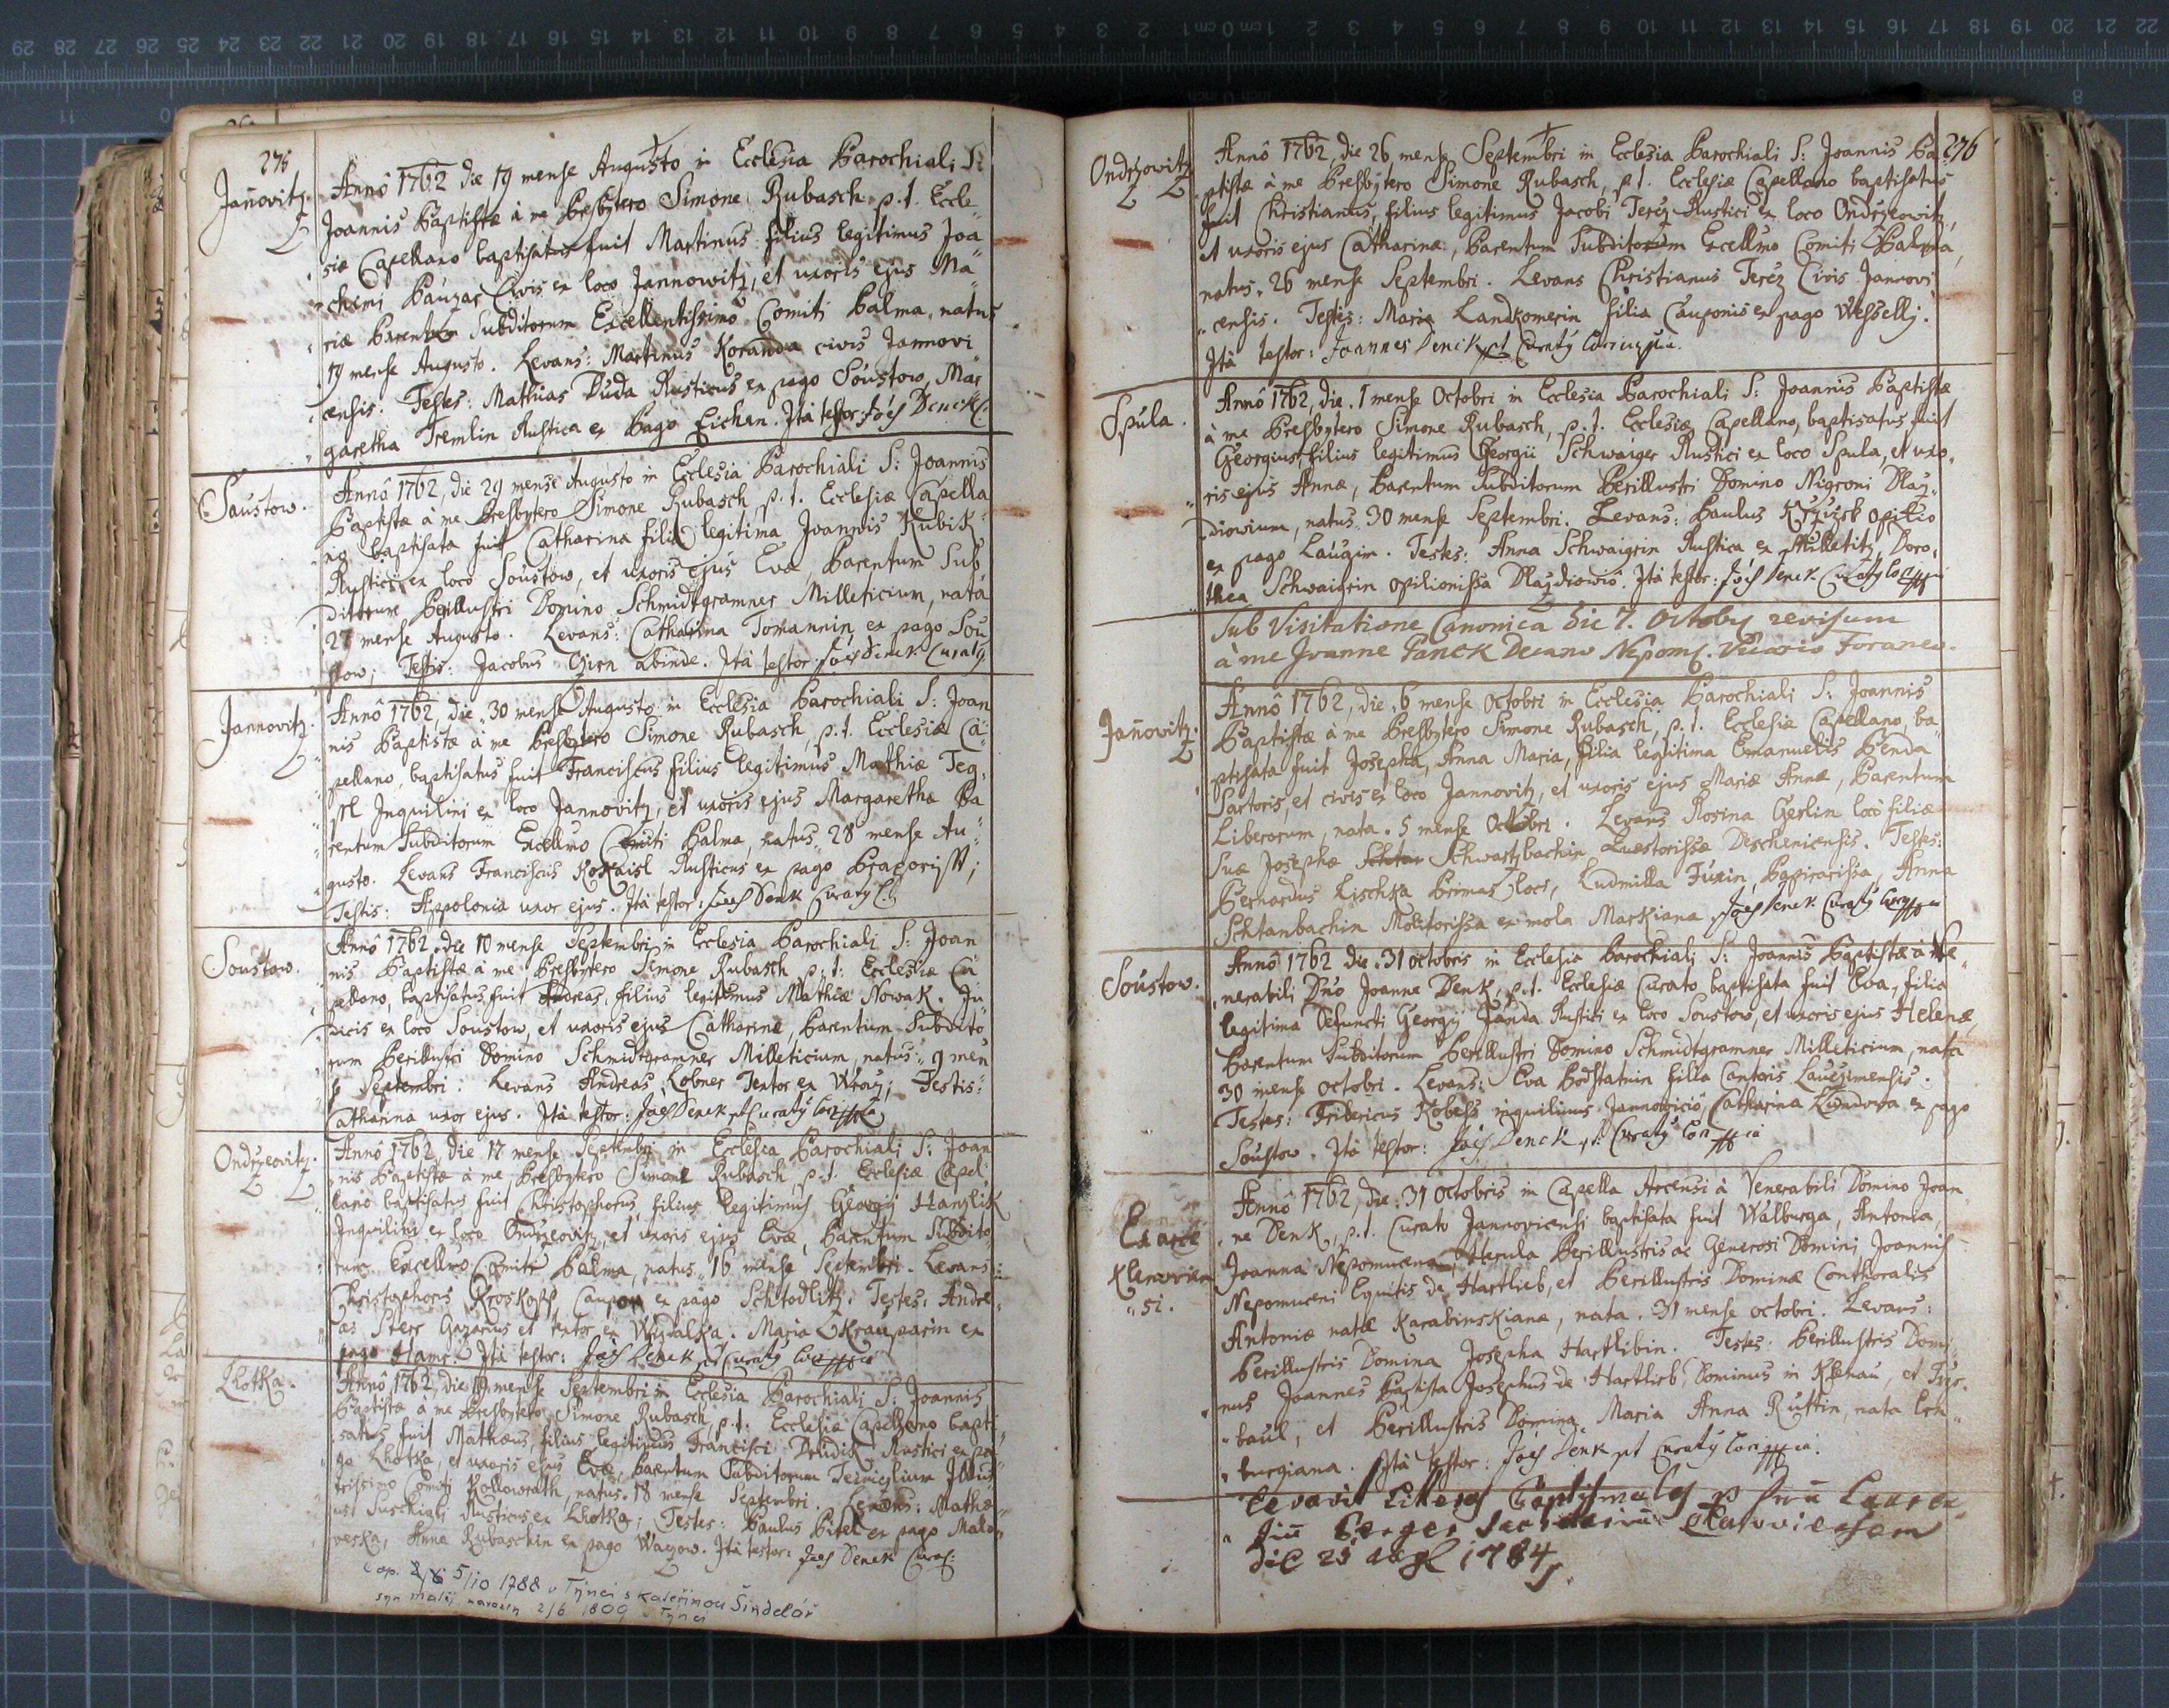 275
Jañovitz.
Annô 1762 die 19 mense Augusto in Ecclesia Parochiali S:
Joannis Baptistæ à me Presbytero Simone Rubasch, p.t. Eccle
siæ Capellano baptisatus fuit Martinus filius legitimus Joa
chimi Pauzar Civis ex loco Jannowitz, et uxoris ejus Ma
riæ Parentum Subditorum Excellentissimo Comiti Palma, natus
19 mense Augusto. Levans: Martinus Koranda civis Jannovi
censis. Testes: Mathias Duda Rusticus ex pago Soustow, Mar
garetha Tremlin Rustica ex Pago Eichen. Ità testor: Joês Denck C.
Saustow.
Annô 1762, die 29 mense Augusto in Ecclesia Parochiali S: Joannis
Baptistæ à me Presbytero Simone Rubasch, p.t. Ecclesiæ Capella
no baptisata fuit Catharina filia legitima Joannis Kubik
Rustici ex loco Soustow, et uxoris ejus Evæ, Parentum Sub
ditorum Perillustri Domino Schmidtgramner Milleticium, nata
27 mense Augusto. Levans: Catharina Tomannin ex pago Sou
stow; Testis: Jacobus abinde. Ità testor Joês Denck Curatq
Jannovitz.
Annô 1762, die 30 mense Augusto in Ecclesia Parochiali S: Joan
nis Baptistæ à me Presbytero Simone Rubasch, p.t. Ecclesiæ Ca
pellano, baptisatus fuit Franciscus filius legitimus Mathiæ Teg
Inquilini ex loco Jannovitz, et uxoris ejus Margarethæ Pa
rentum Subditorum Excellmo Comiti Palma, natus 28 mense Au
gusto. Levans Franciscus Kokaisl Rusticus ex pago
Testis: Appolonia uxor ejus. Ità testor: Joês Denk Curatq C.
Soustow.
Annô 1762, die 10 mense Septembri in Ecclesia Parochiali S: Joan
nis Baptistæ à me Presbytero Simone Rubasch p.t. Ecclesiæ Ca
pellano, baptisatus fuit Andreas, filius legitimus Mathiæ Nowak. Ju
dicis ex loco Soustow, et uxoris ejus Catharinæ, Parentum Subdito
rum Perillustri Domino Schmidtgramner Milleticium, natus 9 men
se Septembri. Levans Andreas Lobner Textor ex Testis:
Catharina uxor ejus. Ità testor: Joês Denck pt Curatq
Ondrzeovitz.
Annô 1762, die 17 mense Septembri in Ecclesia Parochiali S: Joan
nis Baptistæ à me Presbytero Simone Rubasch p.t. Ecclesiæ Capel
lano baptisatus fuit Christophorus, filius legitimus Georgij Hanzlik
Inquilini ex loco Ondrzeovitz, et uxoris ejus Evæ, Parentum Subdito
rum Excellmo Comiti Palma, natus 16 mense Septembri. Levans:
Christophorus Kroskopf Caupo ex pago Schtodlitz. Testes: Andre
as Sterr Gazarius et textor ex Maria ex
pago Hamr. Ità testor: Joês Denck pt Curatq
Lhotka.
Annô 1762, die 19 mense Septembri in Ecclesia Parochiali S: Joannis
Baptistæ à me Presbytero Simone Rubasch p.t. Ecclesiæ Capellano bapti
satus fuit Mathæus, filius legitimus Francisci Rustici ex pa
go Lhotka, et uxoris ejus Evæ, Parentum Subditorum Illus
trissimo Comiti Kollowrath, natus 18 mense Septembri. Levans: Mathæ
us Rusticus ex Lhotka; Testes: Paulus Pitel ex pago Malo
veska, Anna Rubaschin ex pago Waczow. Ità testor: Joês Denck Curat:
cop. 5/10 1788 v Týnci s Kateřinou Šindelář
syn Matěj narozen 2/6 1809 v Týnci
276
Ondrzowitz
Annô 1762, die 26 mense Septembri in Ecclesia Parochiali S: Joannis Ba
ptistæ à me Presbytero Simone Rubasch, p.t. Ecclesiæ Capellano baptisatus
fuit Christianus, filius legitimus Jacobi Terèz Rustici ex loco Ondrzeowitz,
et uxoris ejus Catharinæ, Parentum Subditorum Excellmo Comiti Palma,
natus 26 mense Septembri. Levans Christianus Terèz Civis Jannovi
censis. Testes: Maria Landkomerin filia Cauponis ex pago Wesselly.
Ità testor: Joannes Denck pt Curatq
Spúla.
Annô 1762, die 1 mense Octobri in Ecclesia Parochiali S: Joannis Baptistæ
à me Presbytero Simone Rubasch, p.t. Ecclesiæ Capellano, baptisatus fuit
Georgius, filius legitimus Georgii Schwaiger Rustici ex loco Spula, et uxo
ris ejus Annæ, Parentum Subditorum Perillustri Domino Nigroni Dlaz
diowium, natus 30 mense Septembri. Levans: Paulus opilio
ex pago Laúzim. Testes: Anna Schwaigrin Rustica ex Milletitz, Doro
thea Schwaigrin opilionissa Ità testor: Joês Denck Curatq
Sub Visitatione Canonica die 7. Octobq revisum
à me Joanne Decano Nepom. Vicario Foraneo.
Jañovitz.
Annô 1762, die 6 mense Octobri in Ecclesia Parochiali S: Joannis
Baptistæ à me Presbytero Simone Rubasch, p.t. Ecclesiæ Capellano, ba
ptisata fuit Josepha, Anna Maria, filia legitima Emanuelis Penda
Sartoris, et civis ex loco Jannovitz, et uxoris ejus Mariæ Annæ, Parentum
Liberorum, nata 5 mense Octobri. Levans Rosina Gerlin loco filiæ
suæ Josephæ Schwartzbachin Quæstorissæ Descheniensis. Testes:
Bernardus Lischka Primas loci, Ludmilla Fuxin, Papirarissa, Anna
Schtanbachin Molitorissa ex mola Markiana Joês Denck Curatq
Soustow.
Annô 1762 die 31 octobris in Ecclesia Parochiali S: Joannis Baptistæ à Ve
nerabili Dño Joanne Denk, p.t. Ecclesiæ Curato baptisata fuit Eva, filia
legitima Defuncti Georgij Janda Rustici ex loco Soustow, et uxoris ejus Helenæ,
Parentum Subditorum Perillustri Domino Schmidtgramner Milleticium, nata
30 mense octobri. Levans: Eva filia Cantoris
Testes: Fridericus Kobess inquilinus Jannowició, Catharina ex pago
Soustow. Ità testor: Joês Denck p.t. Curatq
Ex arce
Klenovien
si.
Annô 1762, die 31 Octobris in Capella Arcensi à Venerabili Domino Joan
ne Denk, p.t. Curato Jannoviensi baptisata fuit Walburga, Antonia,
Joanna Nepomucena, Herula Perillustris ac Generosi Domini Joannis
Nepomuceni Equitis de Hartlieb, et Perillustris Dominæ Conthoralis
Antoniæ natæ Karabinskianæ, nata 31 mense octobri. Levans:
Perillustris Domina Josepha Hartlibin. Testes: Perillustris Domi
nus Joannes Baptista Josephus de Hartlieb, Dominus in Klenau, et Tüs
baul, et Perillustris Domina Maria Anna Ruttin, nata
burgiana. Ità testor: Joês Denk pt Curatq
Levavit Litteras Baptismales p
die 25 1784